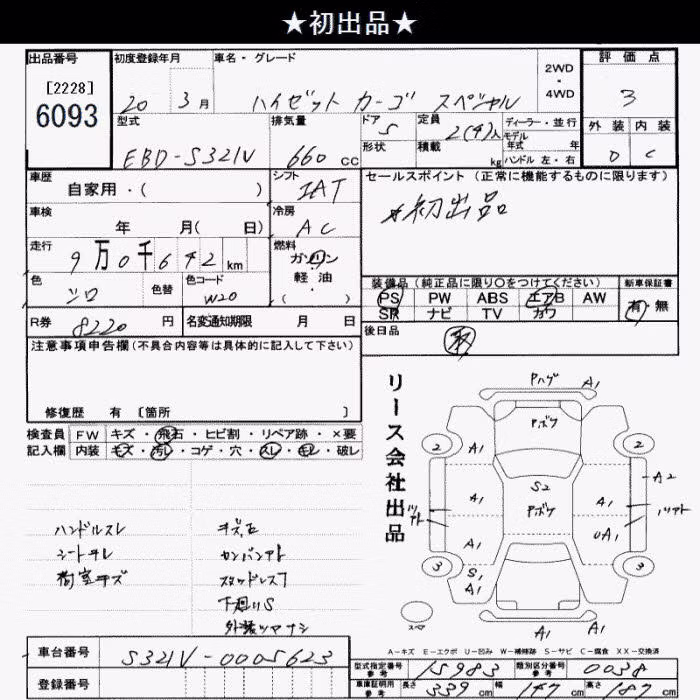 ★初出品★
出品番号 初度登録年月 車名・グレード 2WD・4WD 評価点
[2228] 6093 20 3月 ハイゼット カーゴ スペシャル 3
型式 排気量 ドア 形状 定員 積載 kg ディーラー・並行 モデル 年式 年 ハンドル 左・右 外装 内装
EBD-S321V 660 cc 5 2(4)人 D C
車歴 シフト セールスポイント (正常に機能するものに限ります)
自家用・( ) IAT
車検 冷房 ★初出品
年 月( 日) AC
走行 燃料
9万0千642 km ガソリン
軽油
( )
色 色替 色コード 装備品 (純正品に限り○をつけてください) 新車保証書
シロ W20 PS PW ABS エアB AW 有・無
SR ナビ TV カワ
R券 8220 円 名変通知期限 月 日 後日品
注意事項申告欄 (不具合内容等は具体的に記入して下さい)
修復歴 有 [箇所 ]
検査員 FW キズ・飛石・ヒビ割・リペア跡・×要
記入欄 内装 キズ・汚レ・コゲ・穴・スレ・キレ・破レ
リース会社出品
Pハゲ A1
Pボケ
2 A1 2
S2 A2
A1 Pボケ A1
A1 UA1
3 S1 A1 3
スペア A1 A1
ハンドルスレ
シートキレ
荷室キズ
カンバンアト
スタッドレス7
下廻りS
A-キズ E-エクボ U-凹み W-補修跡 S-サビ C-腐食 XX-交換済
車台番号 S321V-0005623
登録番号
型式指定番号 参考 15983 類別区分番号 参考 0038
車庫証明用 参考 長さ 339 cm 幅 147 cm 高さ 187 cm